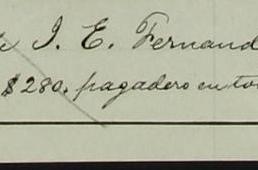 I. E. Fernand
$280. pagadero en